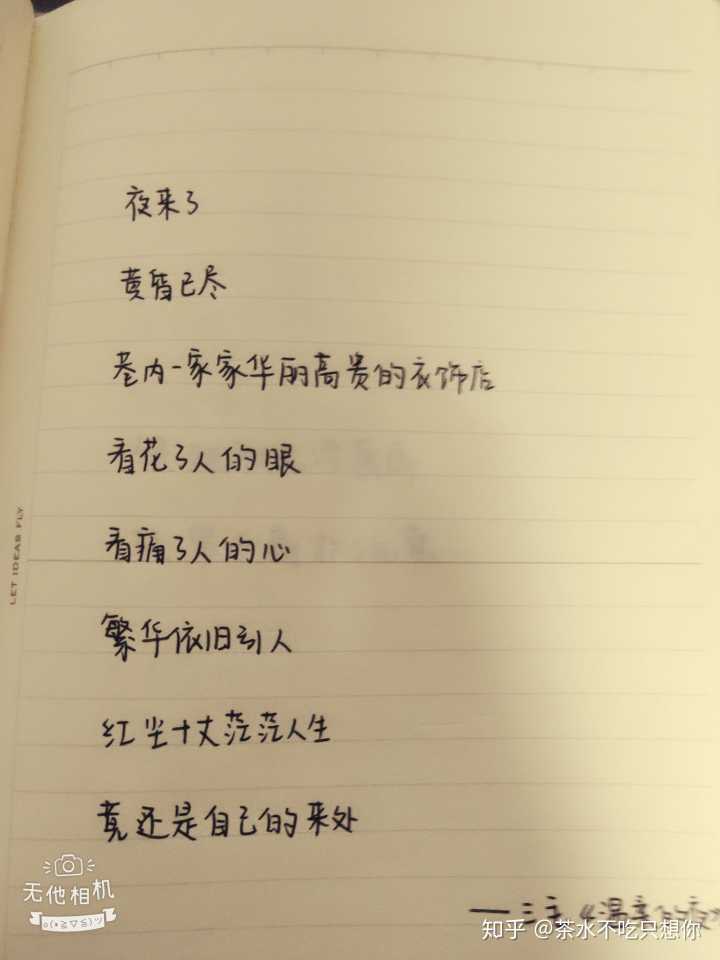 夜来了
黄昏已尽
巷内一家家华丽高贵的衣饰店
看花了人的眼
看痛了人的心
繁华依旧引人
红尘十丈茫茫人生
竟还是自己的来处
LET IDEAS FLY
——三毛《温柔的夜
无他相机
知乎 @茶水不吃只想你